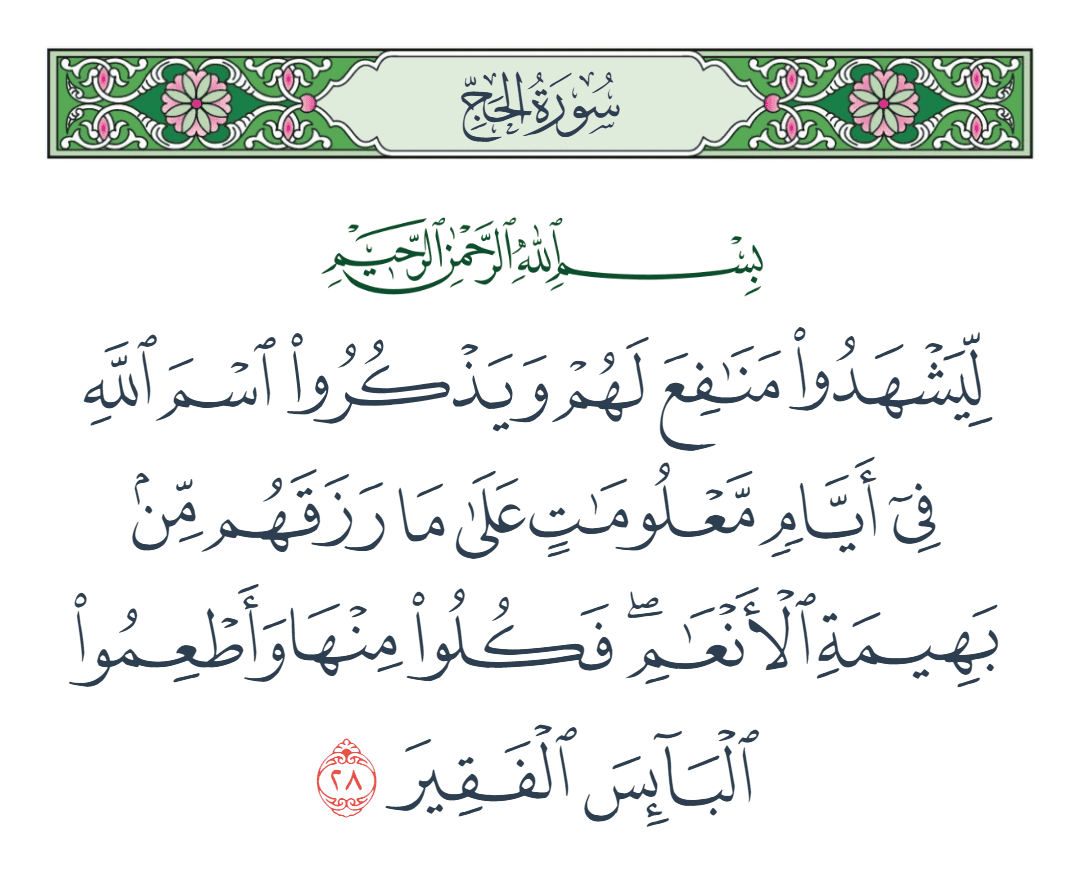 سُورَةُ الحَجِّ
بِسْمِ ٱللَّهِ ٱلرَّحْمَٰنِ ٱلرَّحِيمِ
لِّيَشْهَدُوا۟ مَنَـٰفِعَ لَهُمْ وَيَذْكُرُوا۟ ٱسْمَ ٱللَّهِ
فِىٓ أَيَّامٍ مَّعْلُومَـٰتٍ عَلَىٰ مَا رَزَقَهُم مِّنۢ
بَهِيمَةِ ٱلْأَنْعَـٰمِ ۖ فَكُلُوا۟ مِنْهَا وَأَطْعِمُوا۟
ٱلْبَآئِسَ ٱلْفَقِيرَ ٢٨